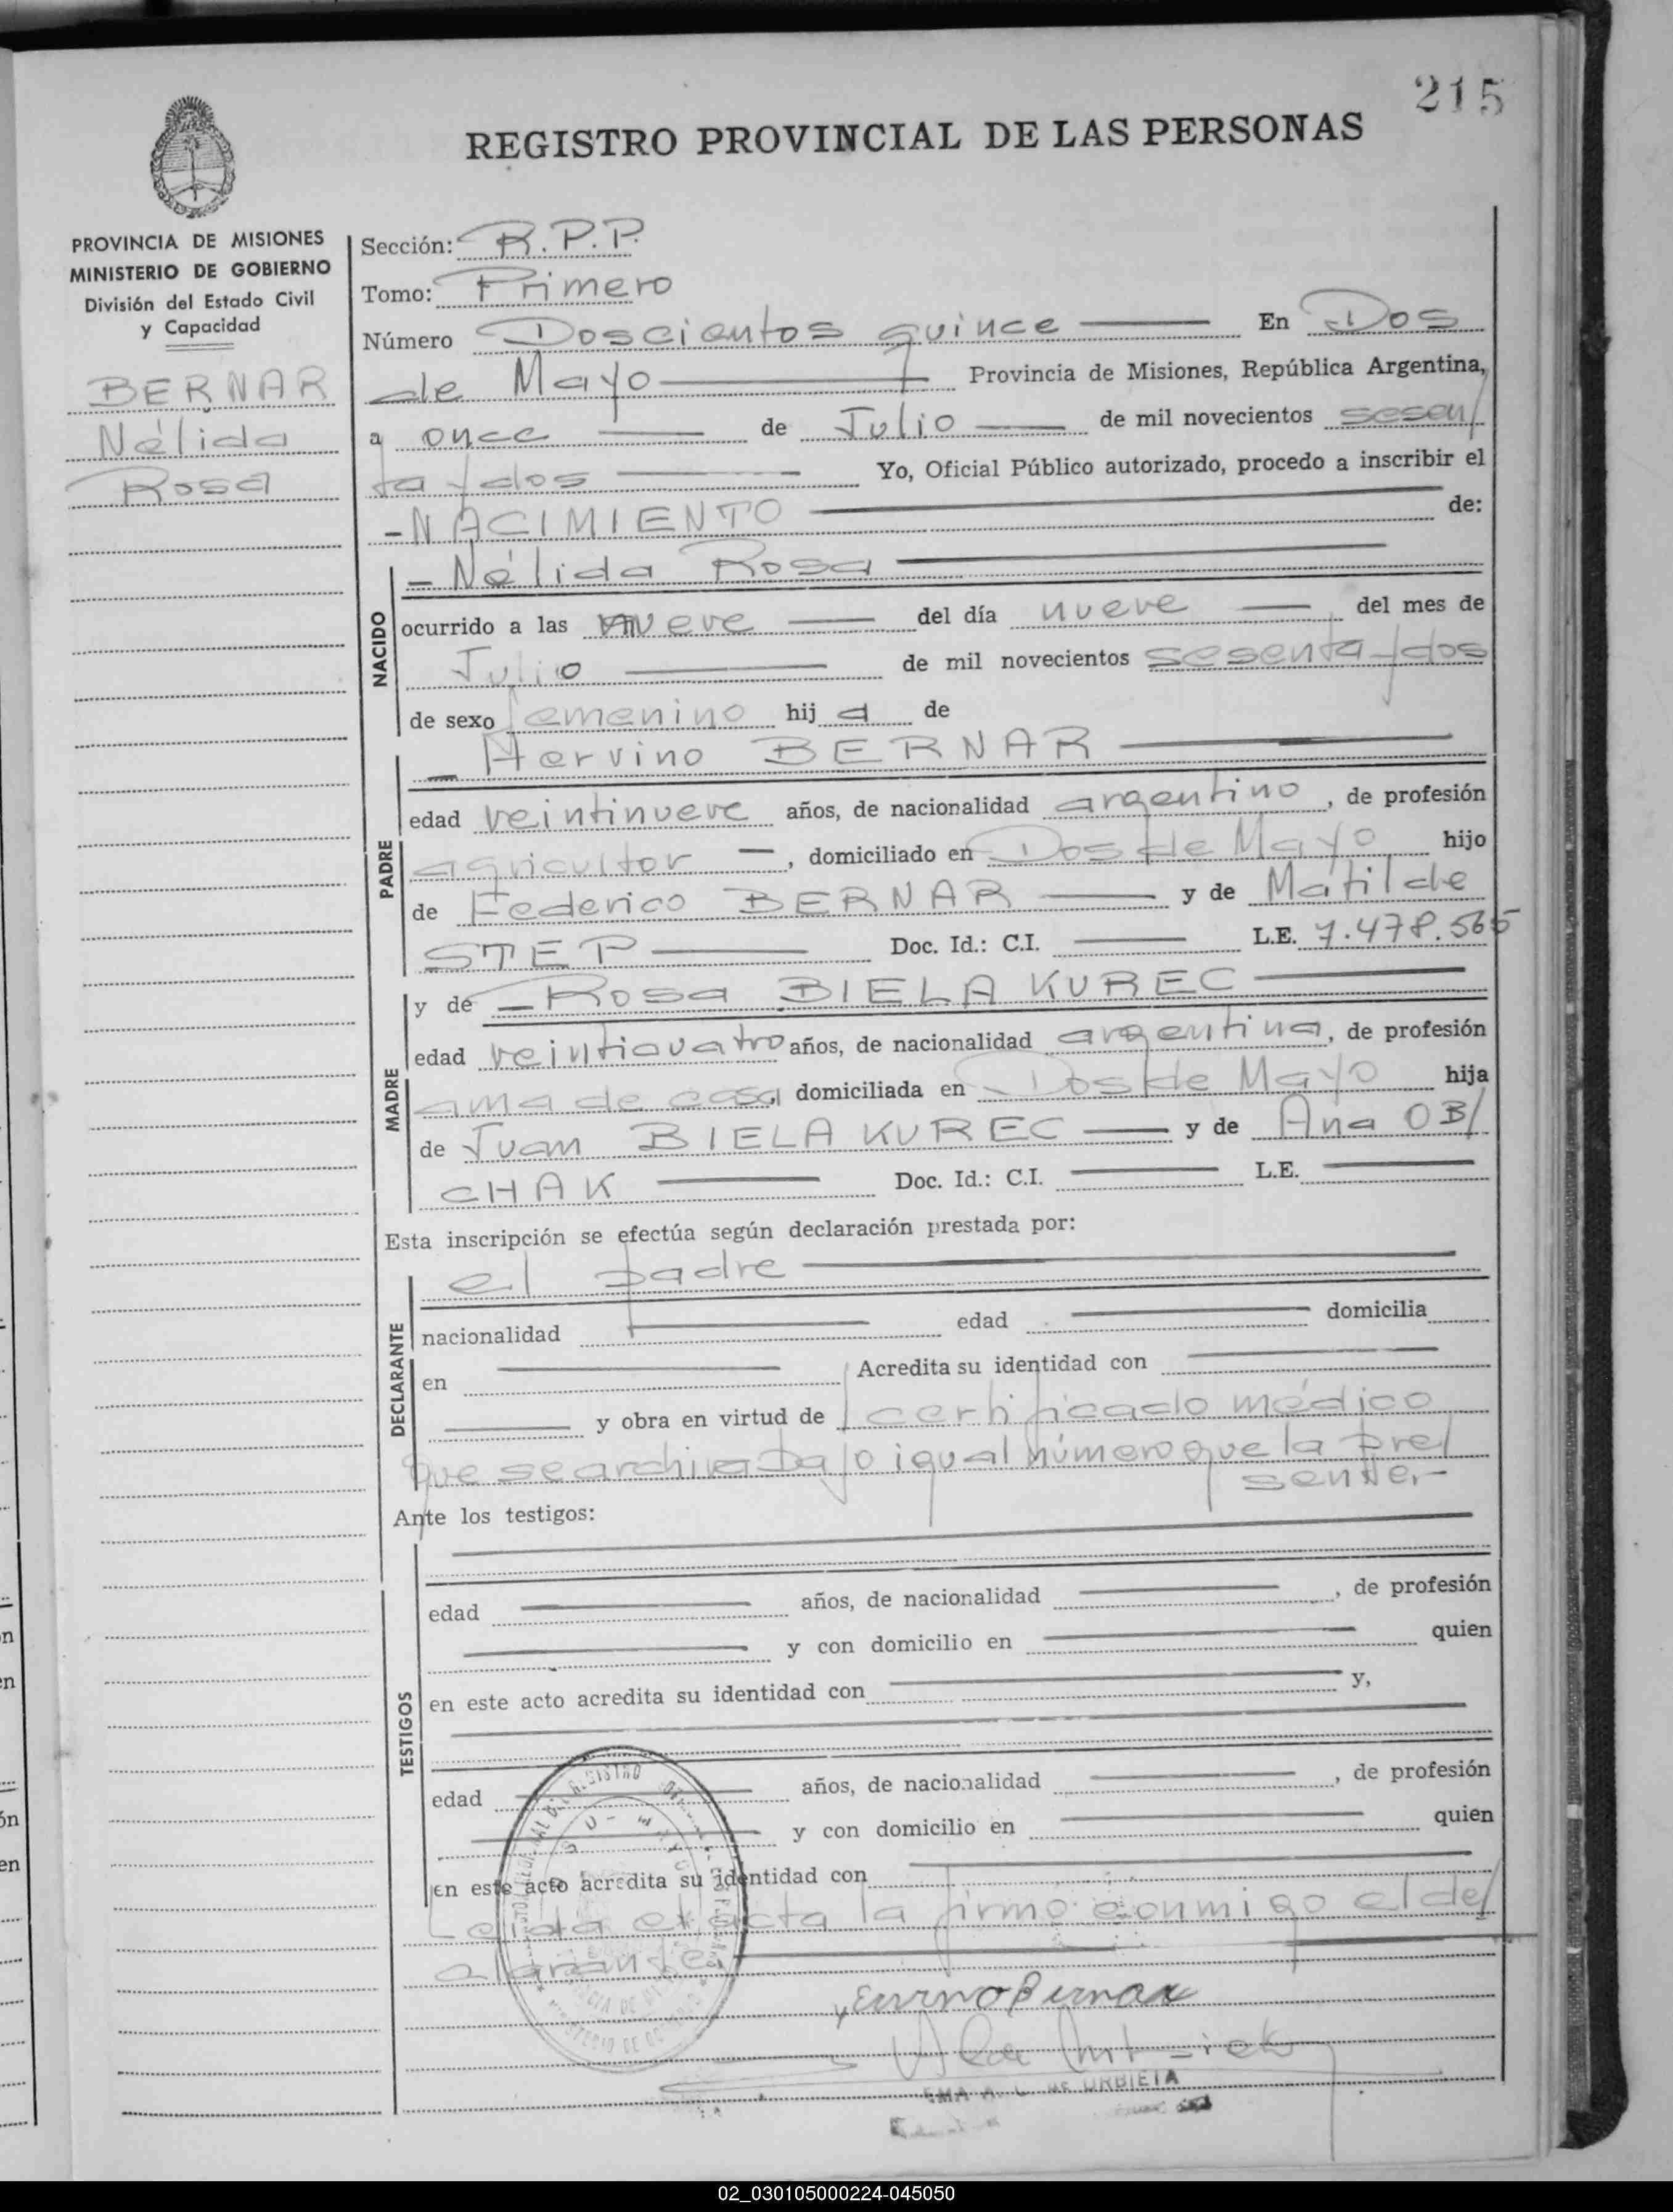 215
REGISTRO PROVINCIAL DE LAS PERSONAS
PROVINCIA DE MISIONES
MINISTERIO DE GOBIERNO
División del Estado Civil
y Capacidad
BERNAR
Nélida
Rosa
Sección: R.P.P.
Tomo: Primero
Número Doscientos quince En Dos
de Mayo Provincia de Misiones, República Argentina,
a once de Julio de mil novecientos sesen/
ta y dos Yo, Oficial Público autorizado, procedo a inscribir el
-NACIMIENTO de:
NACIDO
- Nélida Rosa
ocurrido a las nueve del día nueve del mes de
Julio de mil novecientos sesenta y dos
de sexo femenino hij a de
PADRE
- Hervino BERNAR
edad veintinueve años, de nacionalidad argentino, de profesión
agricultor -, domiciliado en Dos de Mayo hijo
de Federico BERNAR y de Matilde
STEP Doc. Id.: C.I. L.E. 7.478.565
MADRE
y de - Rosa BIELAKUREC
edad veintiouatro años, de nacionalidad argentina, de profesión
ama de casa, domiciliada en Dos de Mayo hija
de Juan BIELAKUREC y de Ana OB/
CHAK Doc. Id.: C.I. L.E.
Esta inscripción se efectúa según declaración prestada por:
DECLARANTE
el padre
nacionalidad edad domicilia
en Acredita su identidad con
y obra en virtud de certificado médico
que se archiva bajo igual número que la pre/
sente.-
Ante los testigos:
TESTIGOS
edad años, de nacionalidad , de profesión
y con domicilio en quien
en este acto acredita su identidad con y,
edad años, de nacionalidad , de profesión
y con domicilio en quien
en este acto acredita su identidad con
Leída el acta la firmó conmigo el de/
clarante.
Bernar
DE URBIETA
02_030105000224-045050